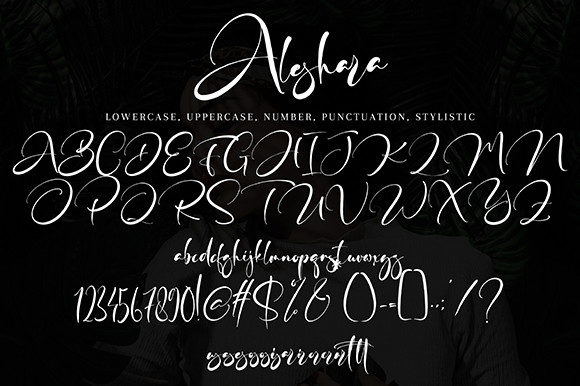 Aleshara
LOWERCASE, UPPERCASE, NUMBER, PUNCTUATION, STYLISTIC
ABCDEFGHIJKLMN
OPQRSTUVWXYZ
abcdefghijklmnopqrstuvwxyz
1234567890!@#$%&()-=[].,:'/?